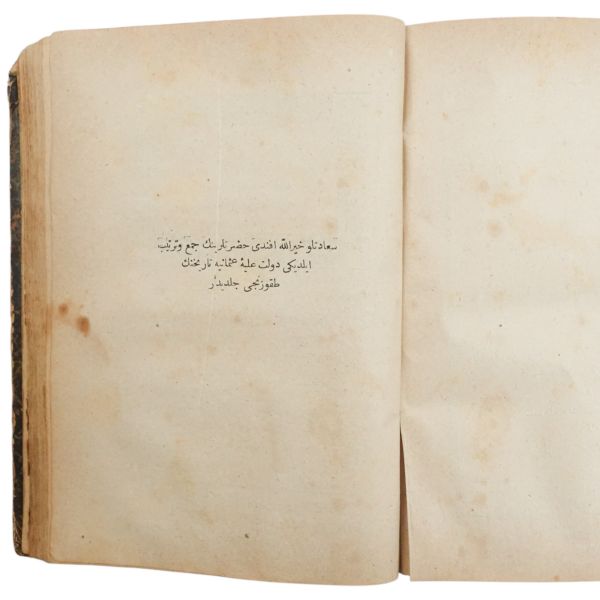 سعادتلو خيرالله افندى حضرتلرينك جمع وترتيب
ايلديكى دولت عليهٔ عثمانيه تاريخنك
طقوزنجى جلديدر